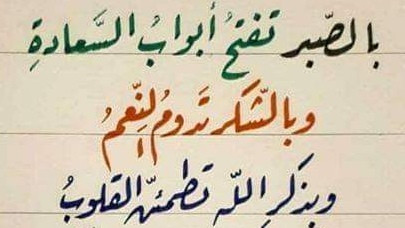 بالصّبر تفتحُ أبوابُ السَّعادةِ
وبالشّكر تَدومُ النِّعمُ
وبذكرِ اللّه تطمئنّ القلوبُ